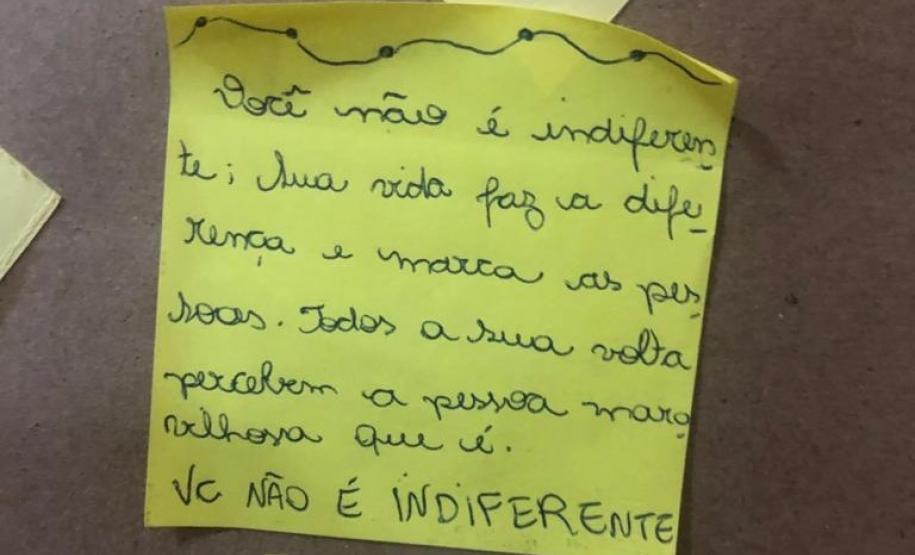 Você não é indiferen
te; sua vida faz a dife
rença e marca as pes
soas. Todos a sua volta
percebem a pessoa mara
vilhosa que é.
VC NÃO É INDIFERENTE